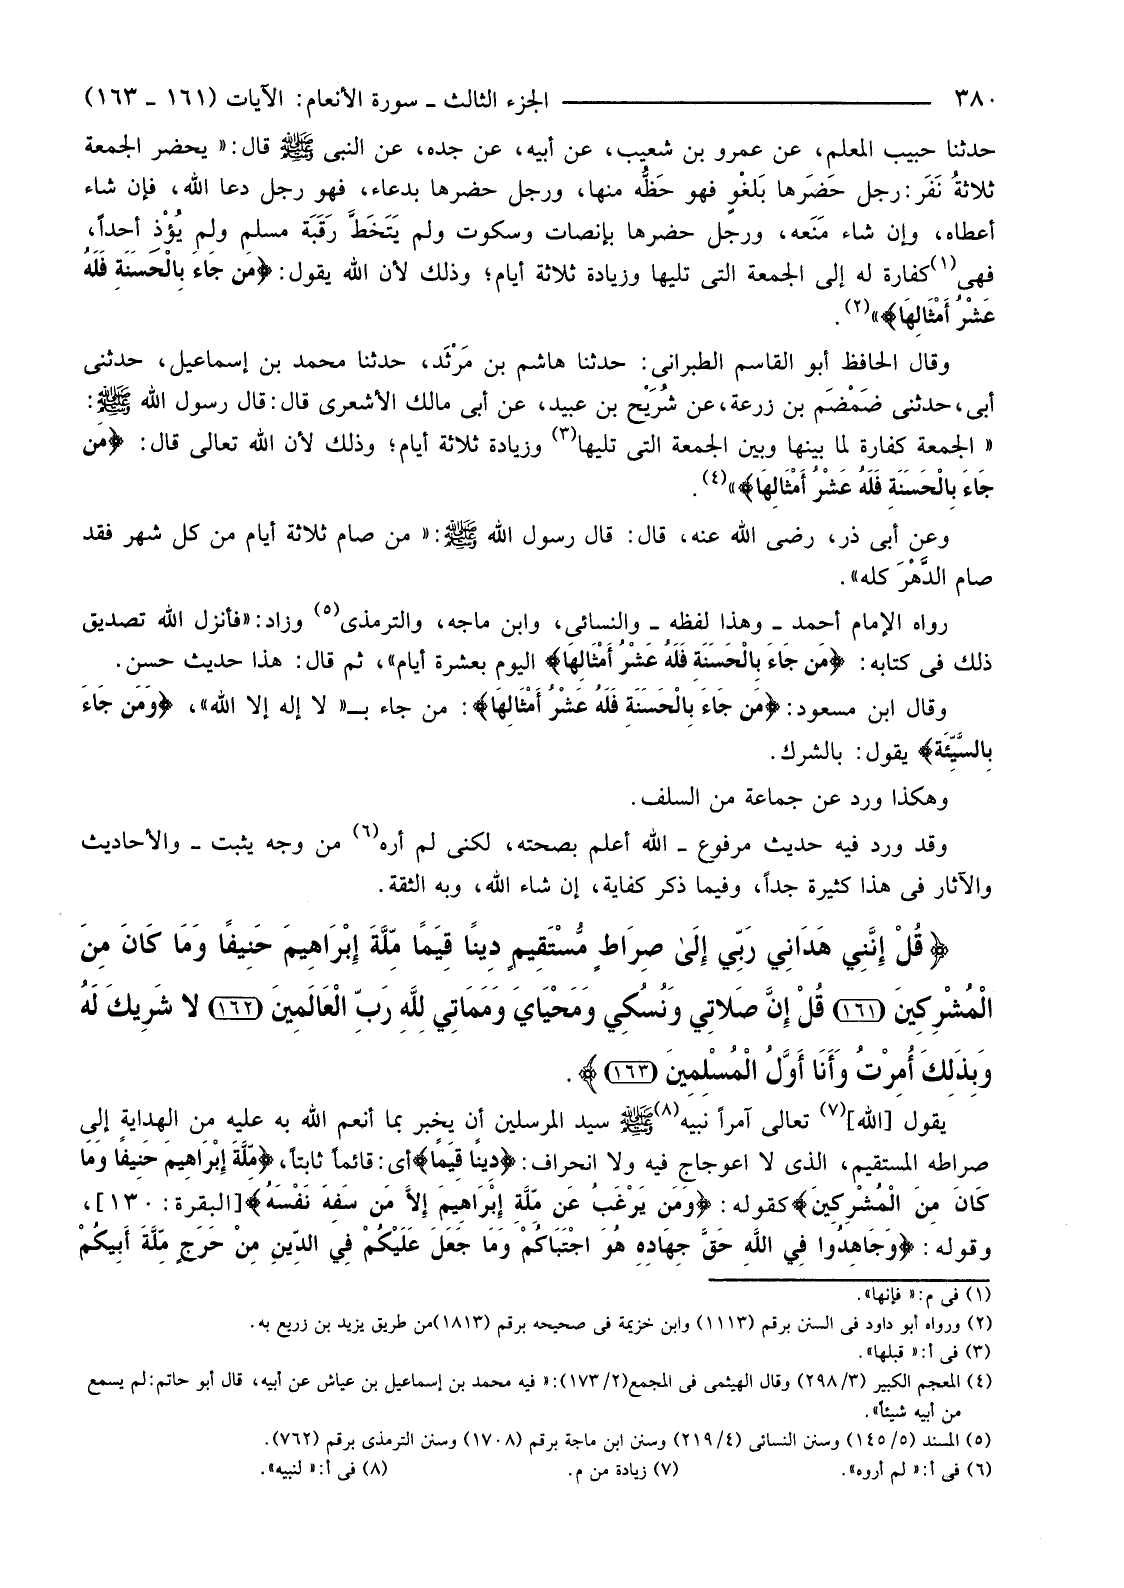 ٣٨٠ ــــــــــــــــــــــــــــــــــــــــ الجزء الثالث ـ سورة الأنعام: الآيات (١٦١ ـ ١٦٣)
حدثنا حبيب المعلم، عن عمرو بن شعيب، عن أبيه، عن جده، عن النبى ﷺ قال: « يحضر الجمعة
ثلاثةُ نَفَر: رجل حَضَرها بَلغوٍ فهو حَظُّه منها، ورجل حضرها بدعاء، فهو رجل دعا الله، فإن شاء
أعطاه، وإن شاء مَنَعه، ورجل حضرها بإنصات وسكوت ولم يَتَخَطَّ رَقَبَة مسلم ولم يُؤْذ أحداً،
فهى(١) كفارة له إلى الجمعة التى تليها وزيادة ثلاثة أيام؛ وذلك لأن الله يقول: ﴿مَن جَاءَ بِالْحَسَنَةِ فَلَهُ
عَشْرُ أَمْثَالِهَا﴾»(٢).
وقال الحافظ أبو القاسم الطبرانى: حدثنا هاشم بن مَرْثَد، حدثنا محمد بن إسماعيل، حدثنى
أبى، حدثنى ضَمْضَم بن زرعة، عن شُرَيْح بن عبيد، عن أبى مالك الأشعرى قال: قال رسول الله ﷺ:
« الجمعة كفارة لما بينها وبين الجمعة التى تليها(٣) وزيادة ثلاثة أيام؛ وذلك لأن الله تعالى قال: ﴿مَن
جَاءَ بِالْحَسَنَةِ فَلَهُ عَشْرُ أَمْثَالِهَا﴾»(٤).
وعن أبى ذر، رضى الله عنه، قال: قال رسول الله ﷺ: « من صام ثلاثة أيام من كل شهر فقد
صام الدَّهْرَ كله».
رواه الإمام أحمد ـ وهذا لفظه ـ والنسائى، وابن ماجه، والترمذى(٥) وزاد: «فأنزل الله تصديق
ذلك فى كتابه: ﴿مَن جَاءَ بِالْحَسَنَةِ فَلَهُ عَشْرُ أَمْثَالِهَا﴾ اليوم بعشرة أيام»، ثم قال: هذا حديث حسن.
وقال ابن مسعود: ﴿مَن جَاءَ بِالْحَسَنَةِ فَلَهُ عَشْرُ أَمْثَالِهَا﴾: من جاء بـ« لا إله إلا الله»، ﴿وَمَن جَاءَ
بِالسَّيِّئَةِ﴾ يقول: بالشرك.
وهكذا ورد عن جماعة من السلف.
وقد ورد فيه حديث مرفوع ـ الله أعلم بصحته، لكنى لم أره(٦) من وجه يثبت ـ والأحاديث
والآثار فى هذا كثيرة جداً، وفيما ذكر كفاية، إن شاء الله، وبه الثقة.
﴿ قُلْ إِنَّنِي هَدَانِي رَبِّي إِلَىٰ صِرَاطٍ مُّسْتَقِيمٍ دِينًا قِيَمًا مِّلَّةَ إِبْرَاهِيمَ حَنِيفًا وَمَا كَانَ مِنَ
الْمُشْرِكِينَ (١٦١) قُلْ إِنَّ صَلاتِي وَنُسُكِي وَمَحْيَايَ وَمَمَاتِي لِلَّهِ رَبِّ الْعَالَمِينَ (١٦٢) لا شَرِيكَ لَهُ
وَبِذَلِكَ أُمِرْتُ وَأَنَا أَوَّلُ الْمُسْلِمِينَ (١٦٣) ﴾ .
يقول [الله](٧) تعالى آمراً نبيه(٨) ﷺ سيد المرسلين أن يخبر بما أنعم الله به عليه من الهداية إلى
صراطه المستقيم، الذى لا اعوجاج فيه ولا انحراف: ﴿دِينًا قِيَمًا﴾ أى: قائماً ثابتاً، ﴿مِّلَّةَ إِبْرَاهِيمَ حَنِيفًا وَمَا
كَانَ مِنَ الْمُشْرِكِينَ﴾ كقوله: ﴿وَمَن يَرْغَبُ عَن مِّلَّةِ إِبْرَاهِيمَ إِلاَّ مَن سَفِهَ نَفْسَهُ﴾ [البقرة: ١٣٠]،
وقوله: ﴿وَجَاهِدُوا فِي اللَّهِ حَقَّ جِهَادِهِ هُوَ اجْتَبَاكُمْ وَمَا جَعَلَ عَلَيْكُمْ فِي الدِّينِ مِنْ حَرَجٍ مِّلَّةَ أَبِيكُمْ
(١) فى م: « فإنها».
(٢) ورواه أبو داود فى السنن برقم (١١١٣) وابن خزيمة فى صحيحه برقم (١٨١٣) من طريق يزيد بن زريع به.
(٣) فى أ: « قبلها».
(٤) المعجم الكبير (٢٩٨/٣) وقال الهيثمى فى المجمع (١٧٣/٢): « فيه محمد بن إسماعيل بن عياش عن أبيه، قال أبو حاتم: لم يسمع
من أبيه شيئاً».
(٥) المسند (١٤٥/٥) وسنن النسائى (٢١٩/٤) وسنن ابن ماجة برقم (١٧٠٨) وسنن الترمذى برقم (٧٦٢).
(٦) فى أ: « لم أروه». (٧) زيادة من م. (٨) فى أ: « لنبيه».